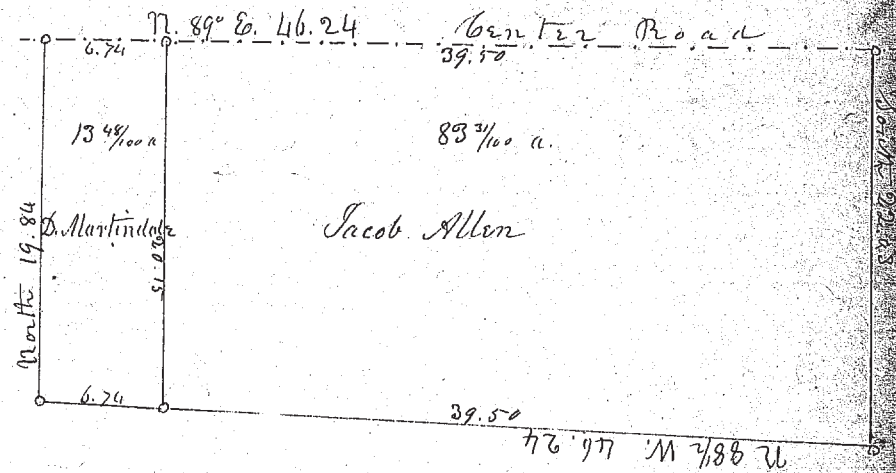 N. 89° E. 46.24 Center Road
6.74 39.50
13 48/100 a 83 31/100 a.
North 19.84
D. Martindale
20.15
Jacob Allen
South
6.74 39.50
N 88½ W. 46.24